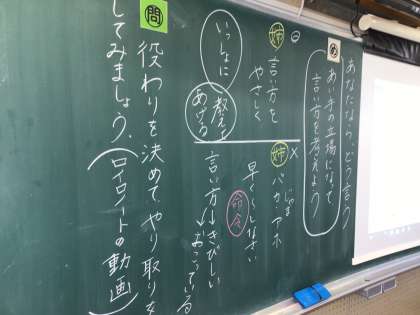 あなたなら、どう言う
め
あい手の立場になって
言い方を考えよう
○
姉
言い方を
やさしく
いっしょに
教えて
あげる
×
姉
じゃま
バカ アホ
早くしなさい
命令
言い方→きびしい
おこっている
問
役わりを決めてやり取りを
してみましょう。
(ロイロノートの動画)